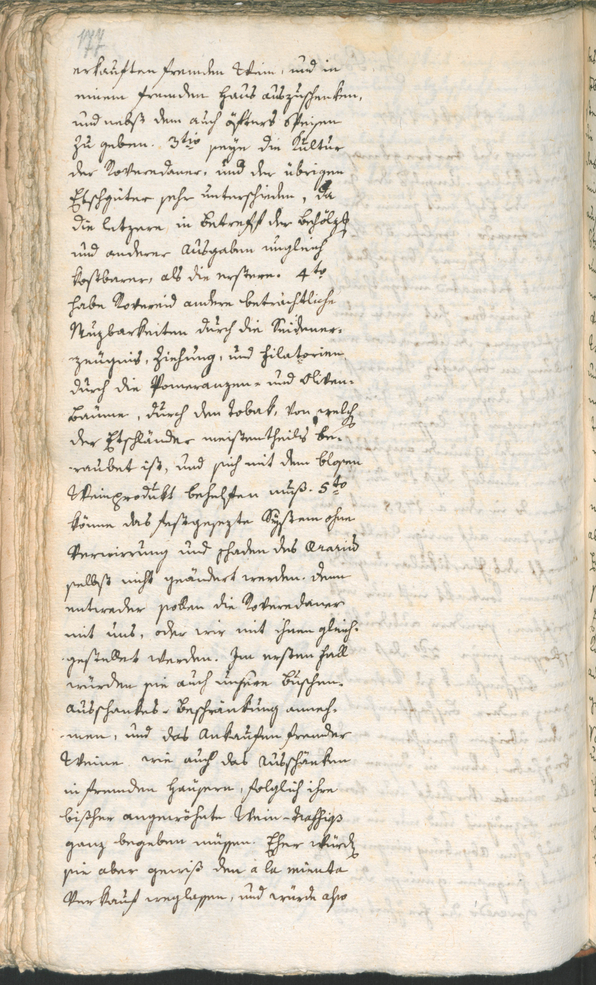 177
erkauften fremden Wein, und in
einem fremden Haus auszuschenken,
und nebst dem auch öfters Speisen
zu geben. 3tio seye die Kultur
der Roveredaner, und der übrigen
Etschgüter sehr unterschieden, da
die letzere in Betreff der Behölzg
und anderer Ausgaben ungleich
kostbarer, als die erstere. 4to
habe Rovereid andere beträchtliche
Nuzbarkeiten durch die Seidener-
zeugnis, Ziehung, und Filatorien
durch die Pomeranzen- und Oliven-
bäume, durch den Tobak, von welch
der Etschländer meistentheils be-
raubet ist, und sich mit dem blosen
Weinprodukt behelfen muß. 5to
könne das festgesezte System ohne
Verwirrung und schaden des Ararius
selbst nicht geändert werden. denn
entweder sollen die Roveredaner
mit uns, oder wir mit ihnen gleich-
gestellet werden. Im ersten fall
würden sie auch unsere Buschen-
ausschankes-Beschränkung anneh-
men, und das Ankaufen fremder
Weine wie auch das Ausschänken
in fremden Häusern, folglich ihre
bißher angewöhnte Wein-
ganz begeben müssen. Eher würd
sie aber gewiß den a la minuta
Verkauf weglassen, und würde also